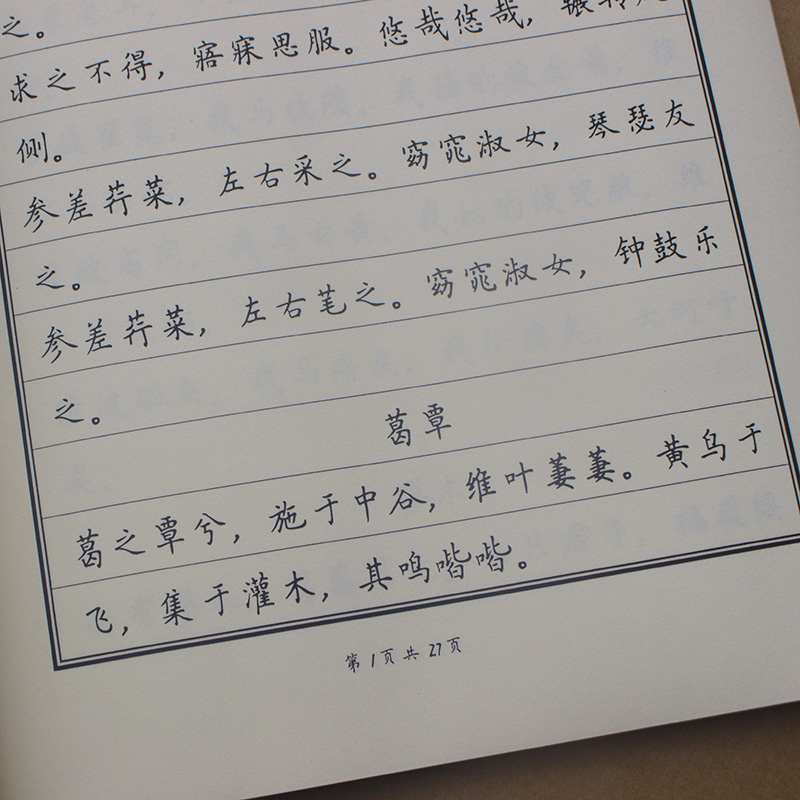 之。
求之不得，寤寐思服。悠哉悠哉，辗转
侧。
参差荇菜，左右采之。窈窕淑女，琴瑟友
之。
参差荇菜，左右芼之。窈窕淑女，钟鼓乐
之。
葛覃
葛之覃兮，施于中谷，维叶萋萋。黄鸟于
飞，集于灌木，其鸣喈喈。
第1页共27页